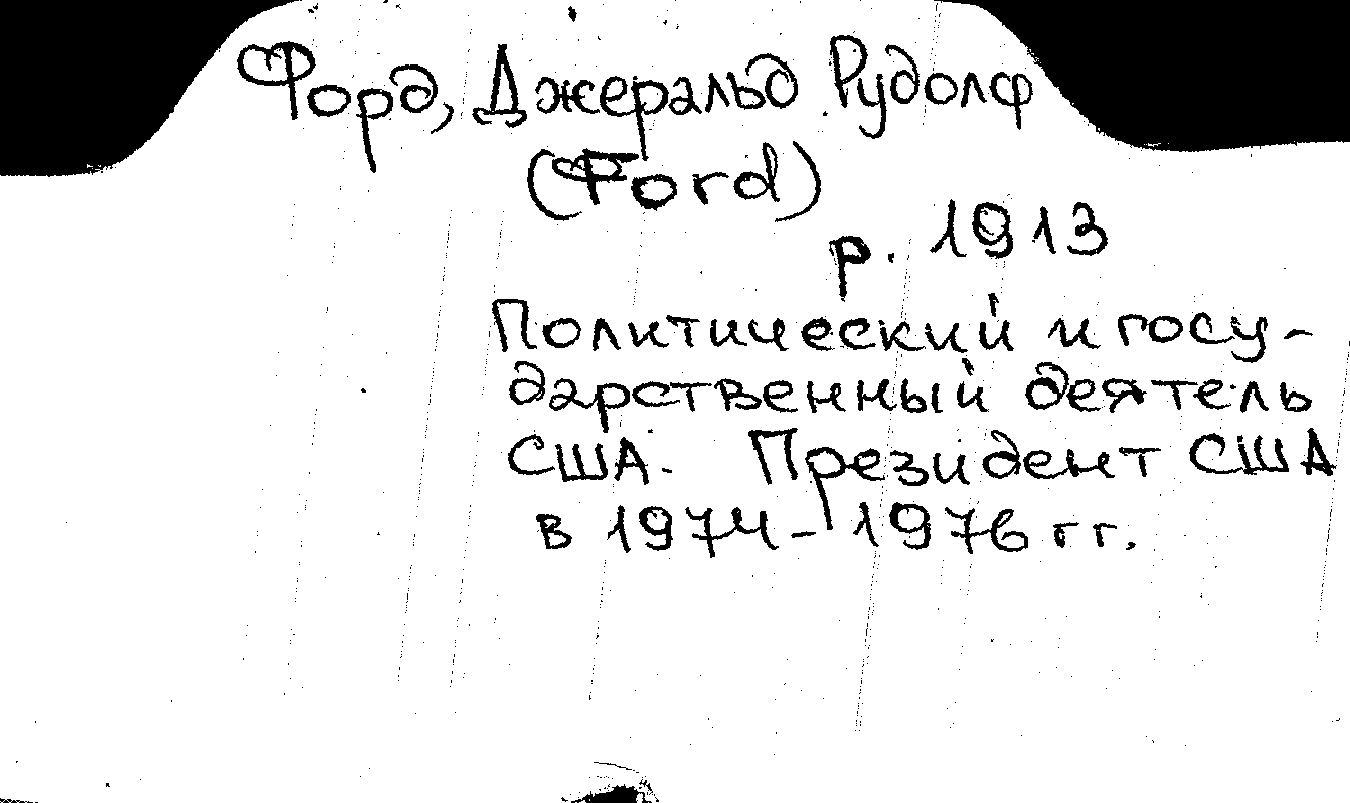 Форд, Джеральд Рудолф
(Ford)
р. 1913
Политический и госу-
дарственный деятель
США. Президент США
в 1974-1976 гг.